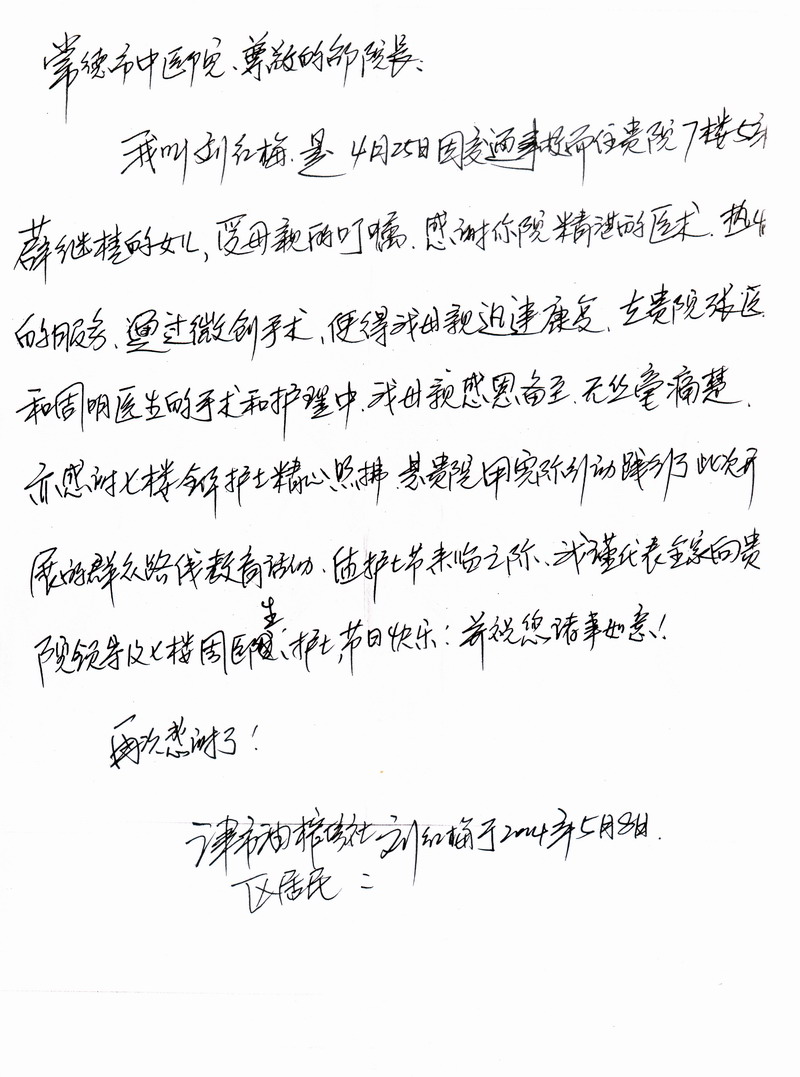 常德市中医院、尊敬的邹院长：
我叫刘红梅，是4月25日因交通事故而住贵院7楼5床
薛继桂的女儿，受母亲的叮嘱，感谢你院精湛的医术，热
的服务，通过微创手术，使得我母亲迅速康复，在贵院张医
和周明医生的手术和护理中，我母亲感恩备至，无丝毫痛楚，
亦感谢七楼全体护士精心照拂，是贵院用实际行动践行了此次开
展的群众路线教育活动，值护士节来临之际，我谨代表全家向贵
院领导及七楼周医生、护士，节日快乐：并祝您诸事如意！
再次感谢了！
津市油榨街社 刘红梅于2014年5月8日.
区居民